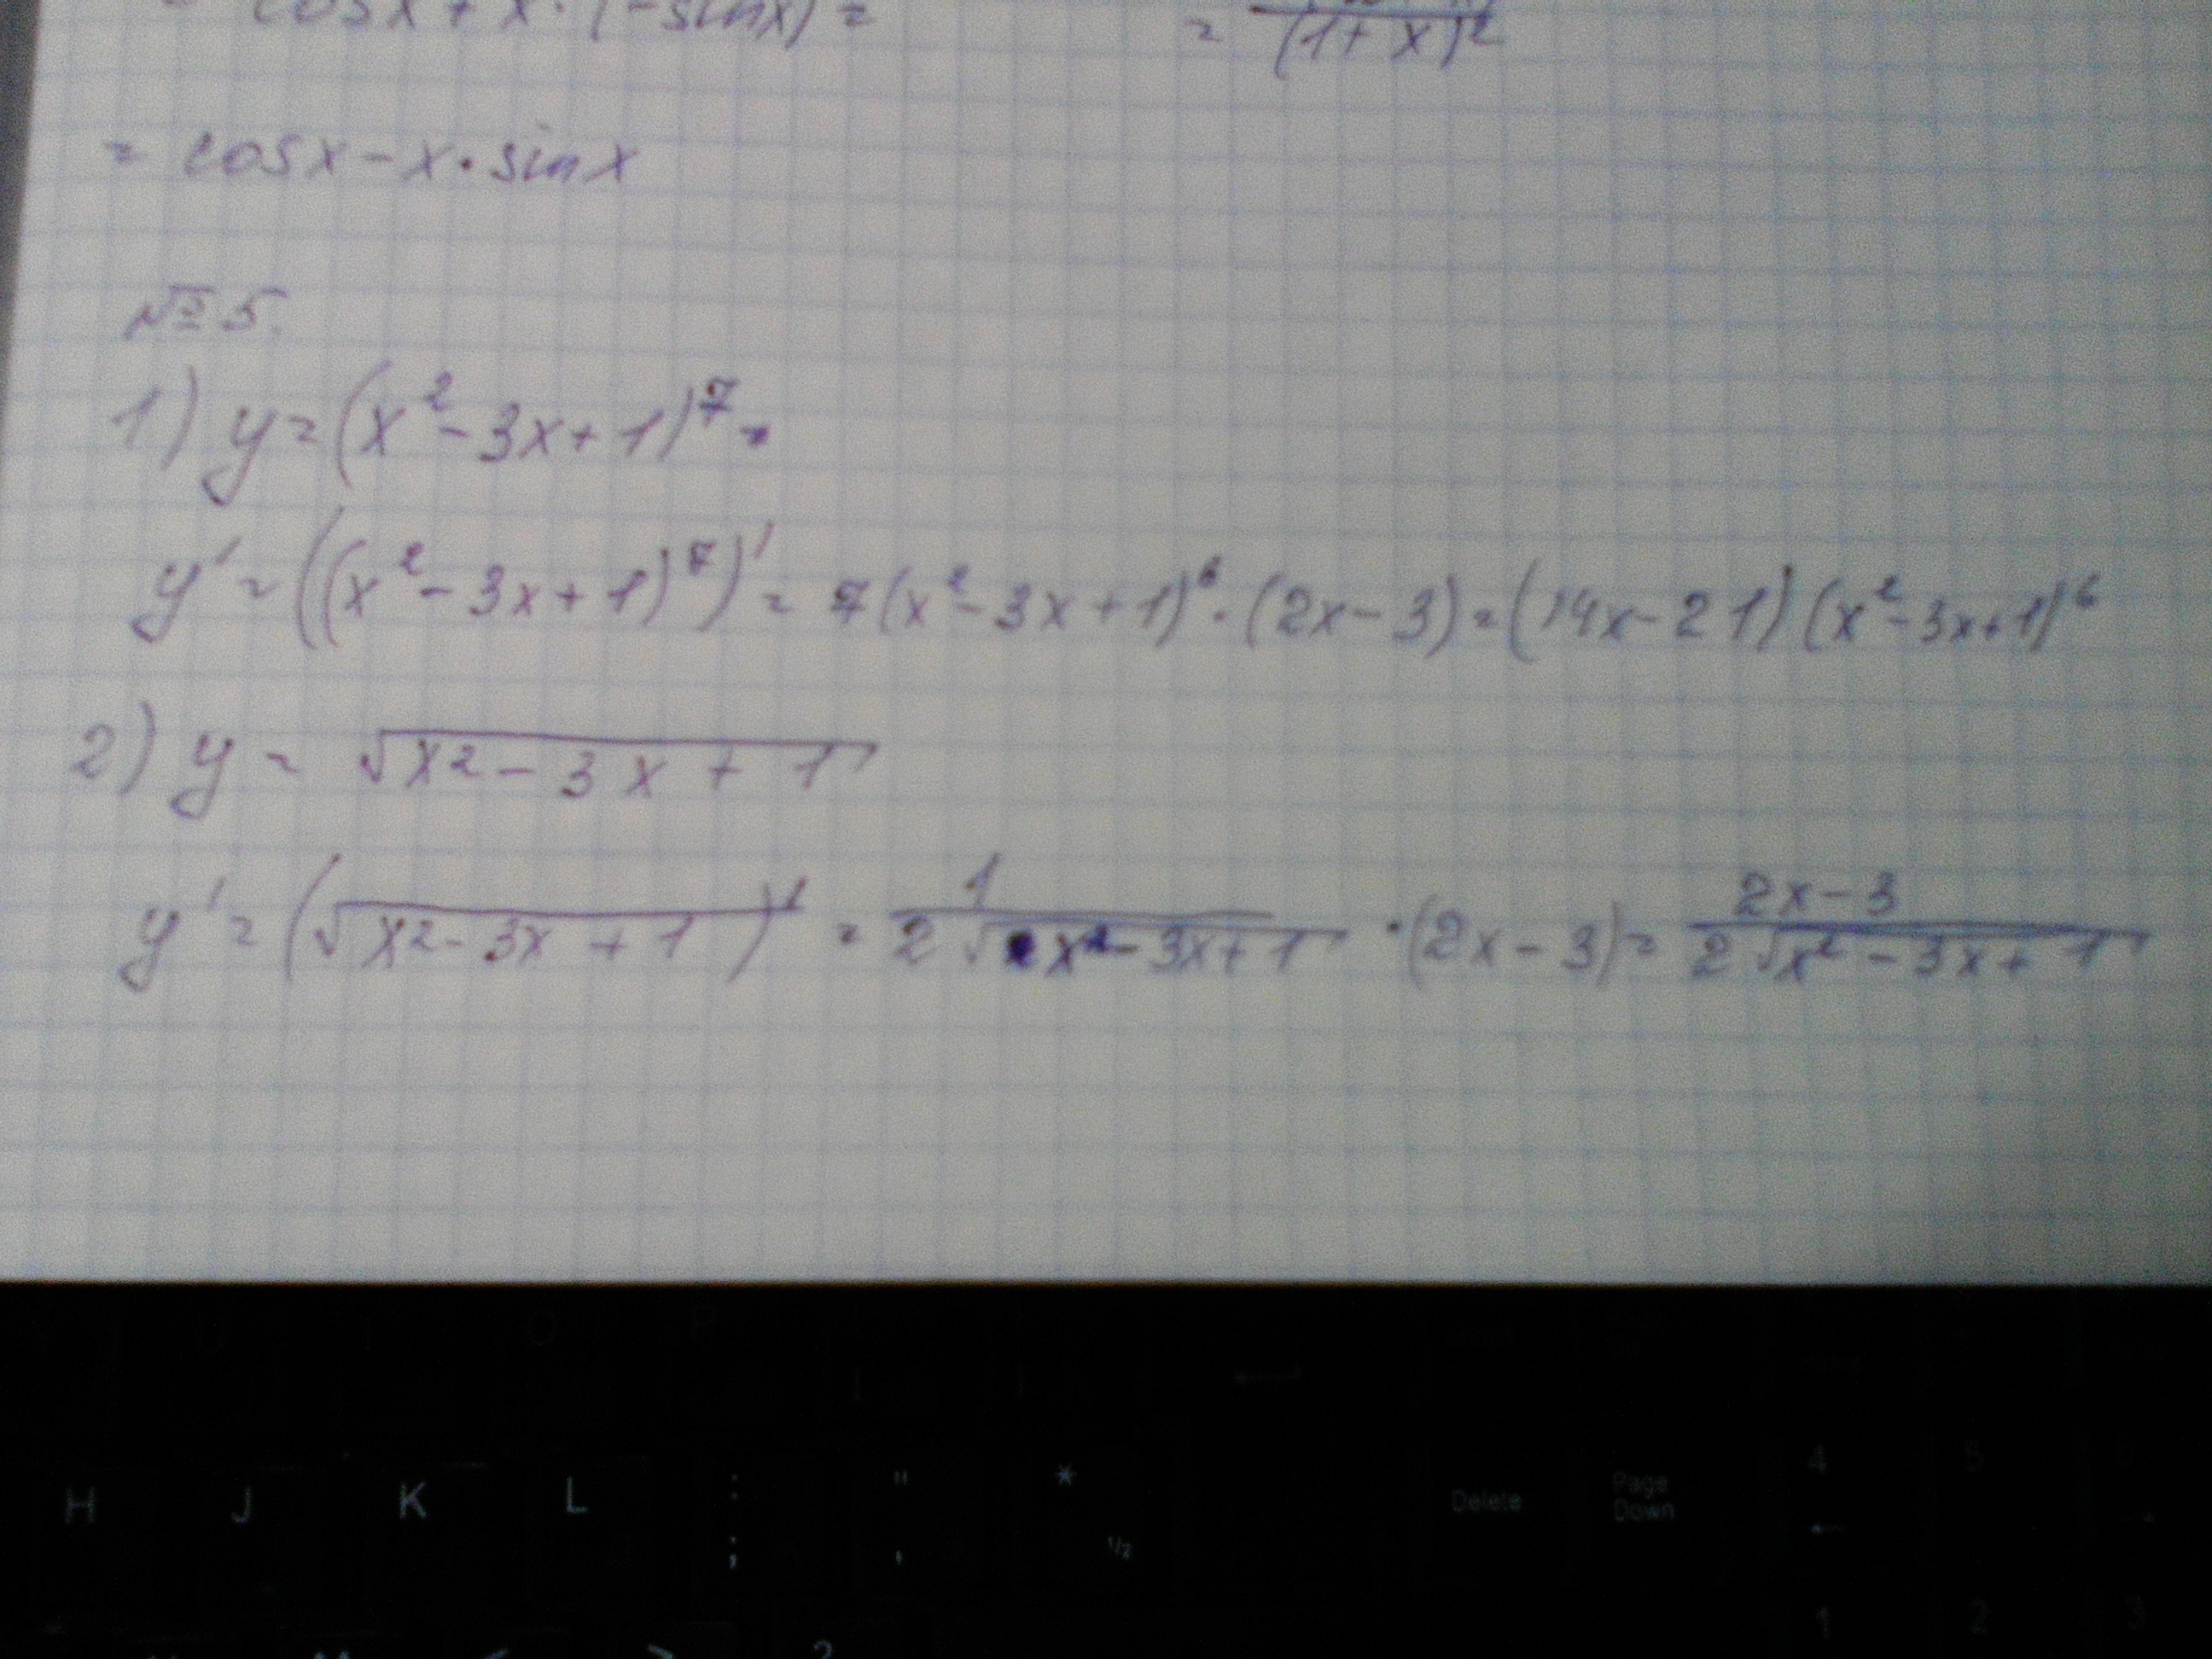 cosx + x · (-sinx) =
= 1/(1+x)²
= cosx - x · sinx
№5.
1) y = (x² - 3x + 1)⁷ =
y' = ((x² - 3x + 1)⁷)' = 7(x² - 3x + 1)⁶ · (2x - 3) = (14x - 21)(x² - 3x + 1)⁶
2) y = √(x² - 3x + 1)
y' = (√(x² - 3x + 1))' = 1/(2√(x² - 3x + 1)) · (2x - 3) = (2x - 3)/(2√(x² - 3x + 1))
O P
H J K L : ; " ' * 1/2 Delete Page Down 4 5
< > ? 1 2 3